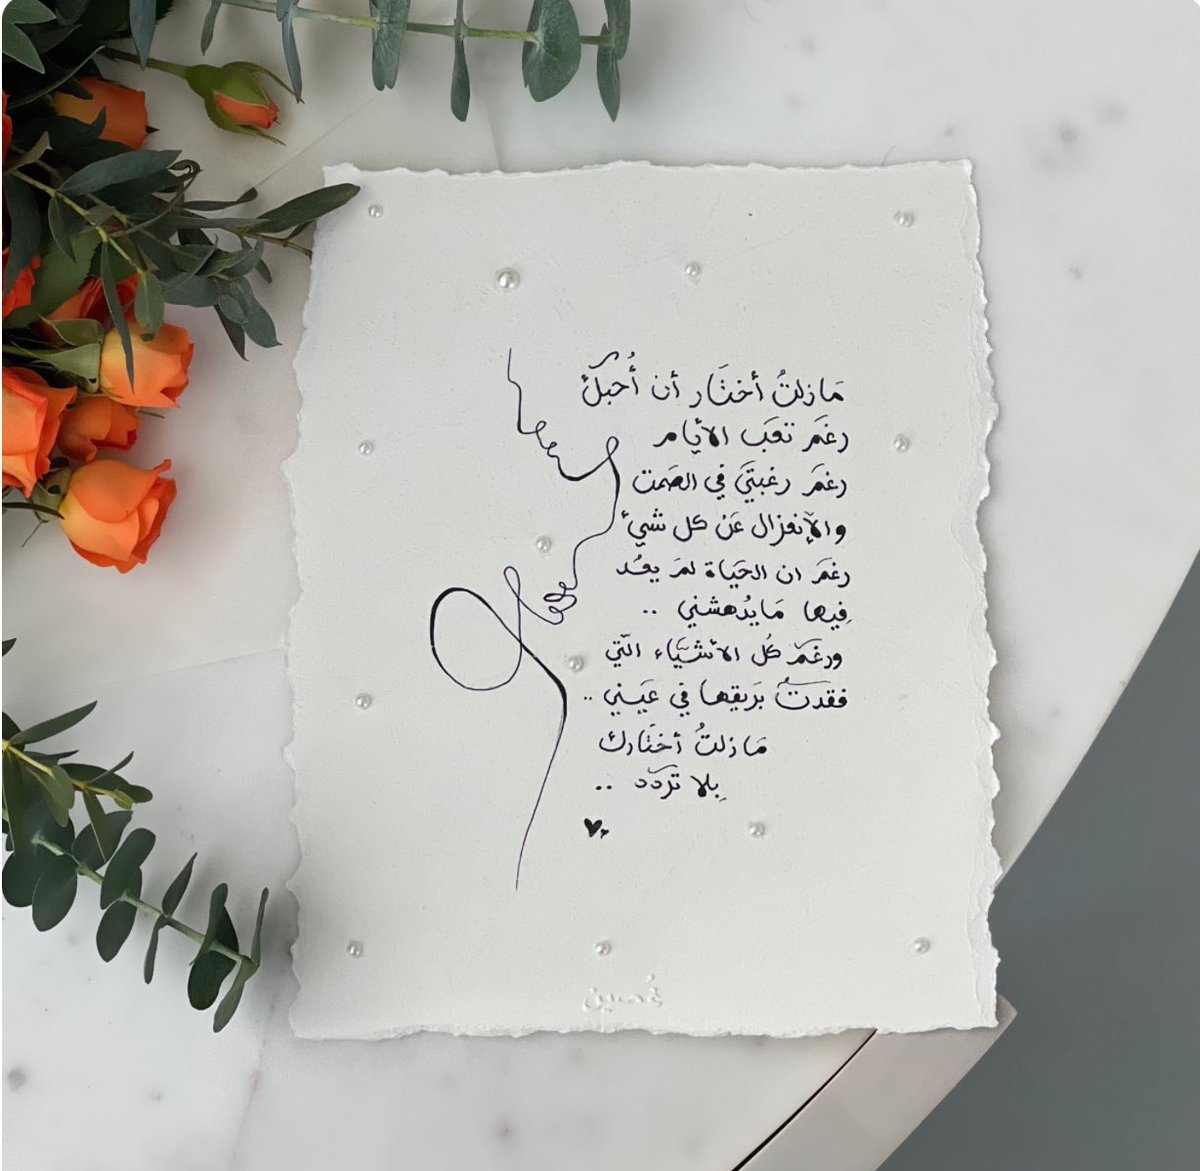 مَازلتُ أختَار أن أُحبكَّ
رغمَ تعَب الأيام
رغمَ رغبتيَ في الصَمت
والإنعزال عَن كل شيئ
رغمَ ان الحَياة لمَ يعُد
فِيها مَايُدهشني ..
ورغمَ كُل الأشيَاء التّي
فقدَتْ برَيقها في عَيني ..
مَازلتُ أختَارك
بِلا تردَد ..
غُصين